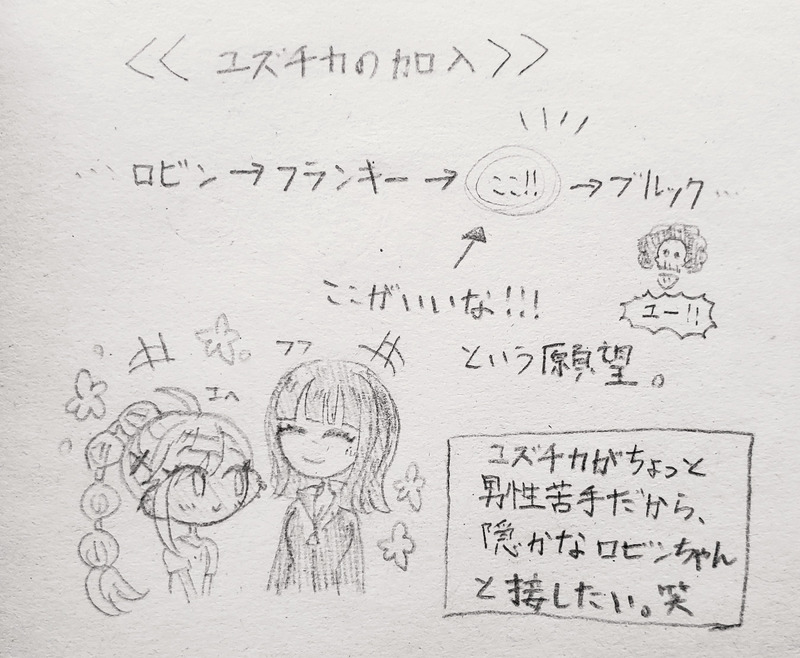 << ユズチカの加入 >>
… ロビン → フランキー → ここ!! → ブルック …
ここがいいな!!!
という願望。
ユー!!
フフ
エヘ
ユズチカがちょっと
男性苦手だから、
隠かなロビンちゃん
と接したい。笑